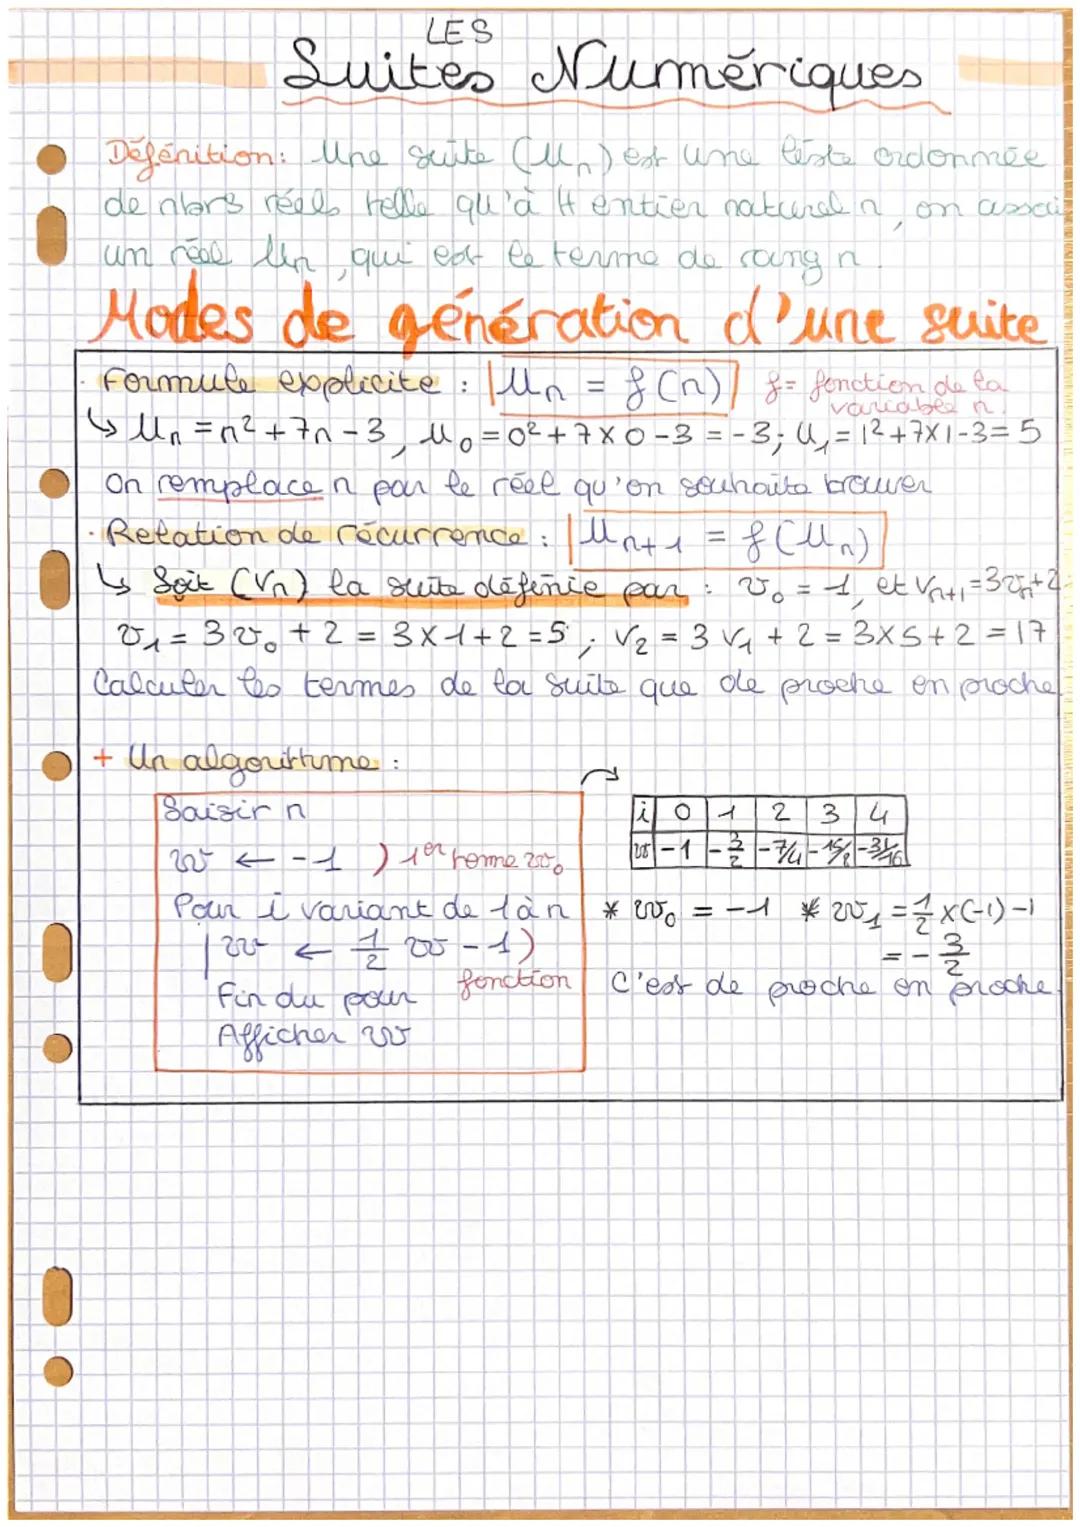 LES
Suites Numériques
Définition: Une suite (Un) est une liste ordonnée
de nbrs réels telle qu'à tt entier naturel n, on associ
un réel Un, qui est le terme de rang n.
Modes de génération d'une suite
· Formule explicite : Un = f(n) f = fonction de la
variable n.
↳ Un = n² + 7n - 3, U₀ = 0² + 7×0 - 3 = -3; U₁ = 1² + 7×1 - 3 = 5
On remplace n par le réel qu'on souhaite trouver
· Relation de récurrence : Un+1 = f(Un)
↳ Soit (Vn) la suite définie par : v₀ = 1, et Vn+1 = 3vn + 2
v₁ = 3v₀ + 2 = 3×1 + 2 = 5; V₂ = 3V₁ + 2 = 3×5 + 2 = 17
Calculer les termes de la suite que de proche en proche
+ Un algorithme :
Saisir n
w ← -1 ) 1er terme w₀
Pour i variant de 1 à n
| w ← 1/2 w - 1 )
fonction
Fin du pour
Afficher w
i 0 1 2 3 4
w -1 -3/2 -7/4 -15/8 -31/16
* w₀ = -1 * w₁ = 1/2 × (-1) - 1
= -3/2
C'est de proche en proche